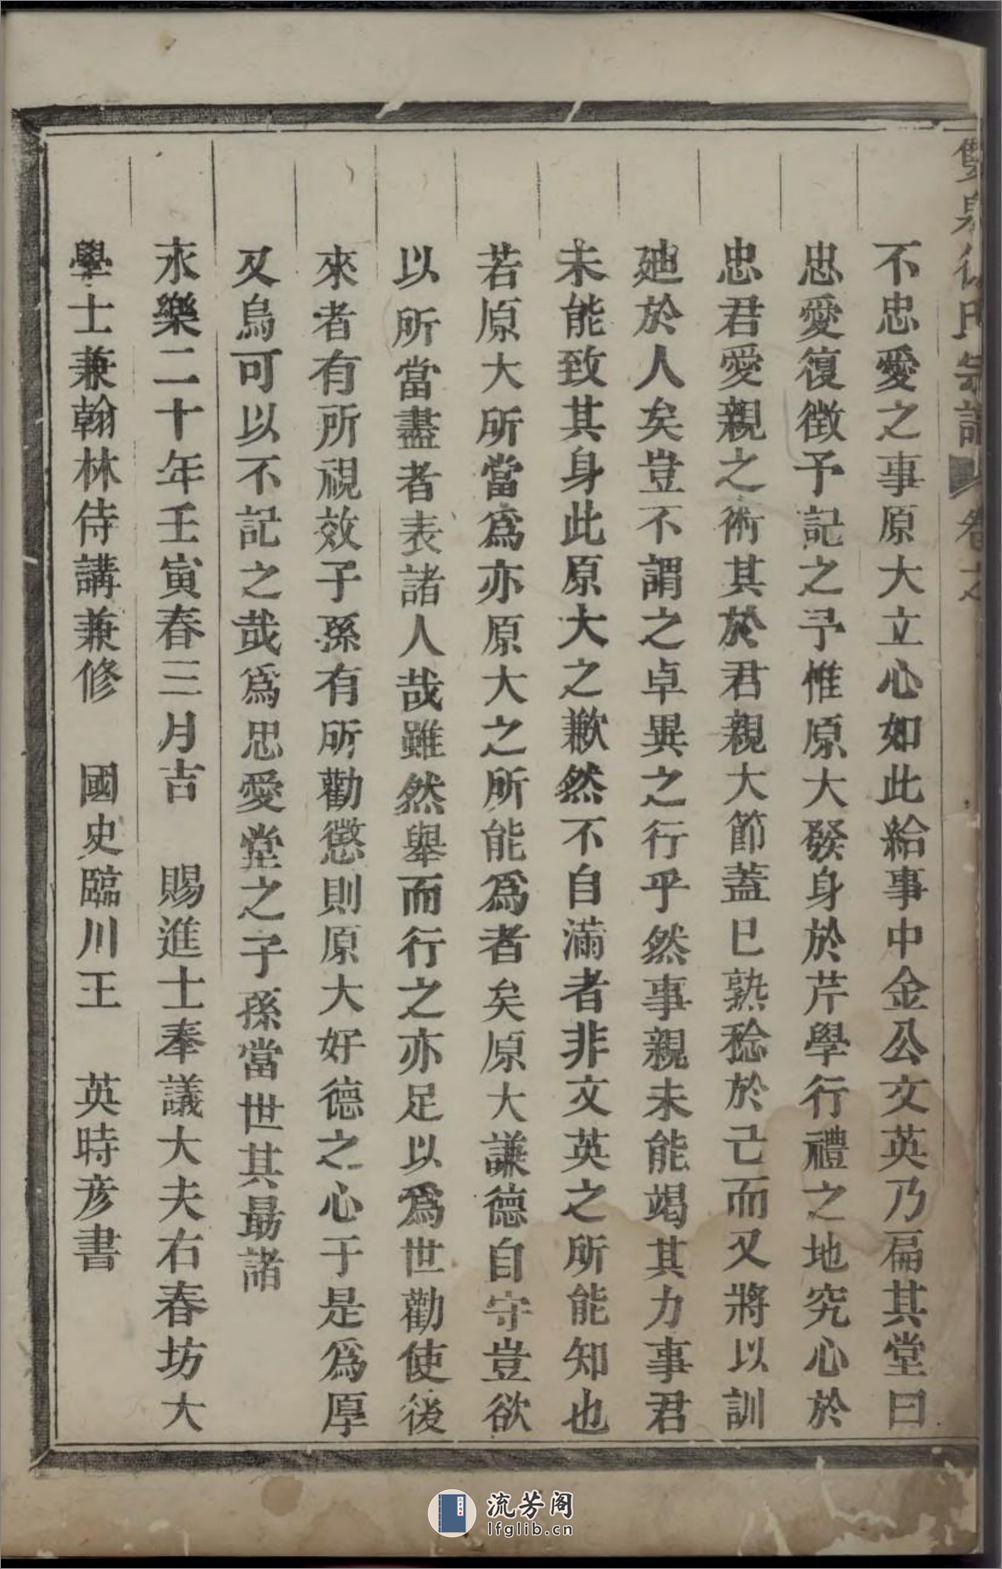 氏宗譜 卷之
不忠愛之事原大立心如此給事中金公文英乃扁其堂曰
忠愛復徵予記之予惟原大發身於芹學行禮之地究心於
忠君愛親之術其於君親大節蓋已熟稔於己而又將以訓
廸於人矣豈不謂之卓異之行乎然事親未能竭其力事君
未能致其身此原大之歉然不自滿者非文英之所能知也
若原大所當爲亦原大之所能爲者矣原大謙德自守豈欲
以所當盡者表諸人哉雖然舉而行之亦足以爲世勸使後
來者有所視效子孫有所勸懲則原大好德之心于是爲厚
又烏可以不記之哉爲忠愛堂之子孫當世其最諸
永樂二十年壬寅春三月吉 賜進士奉議大夫右春坊大
學士兼翰林侍講兼修 國史臨川王 英時彥書
流芳阁
lfglib.cn